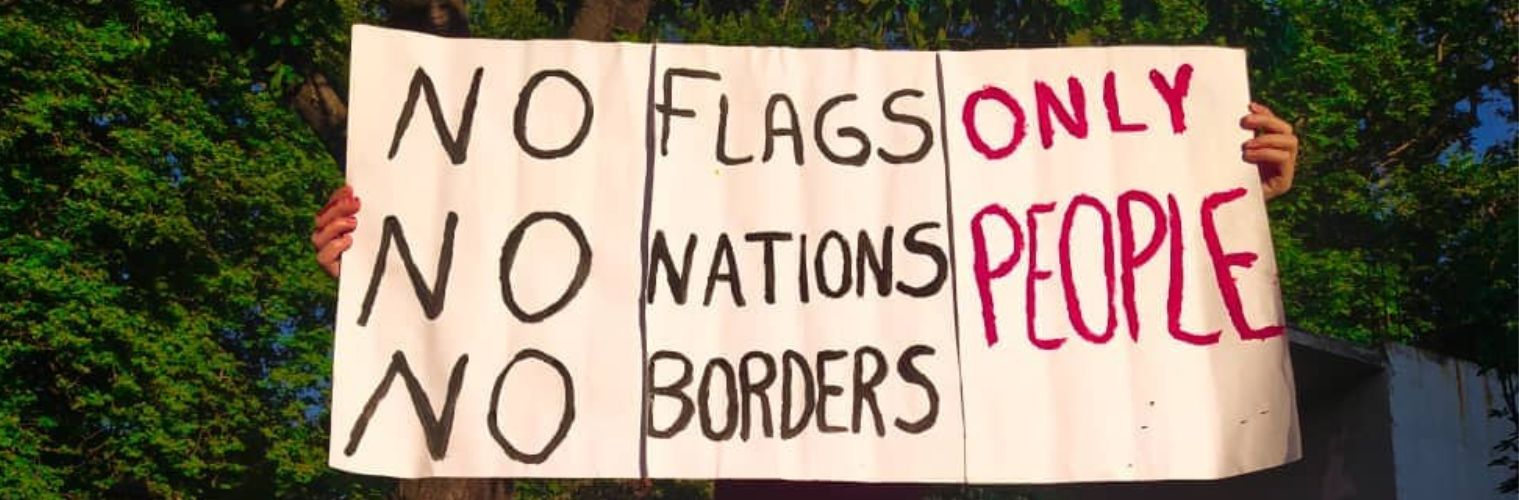 NO FLAGS ONLY
NO NATIONS PEOPLE
NO BORDERS